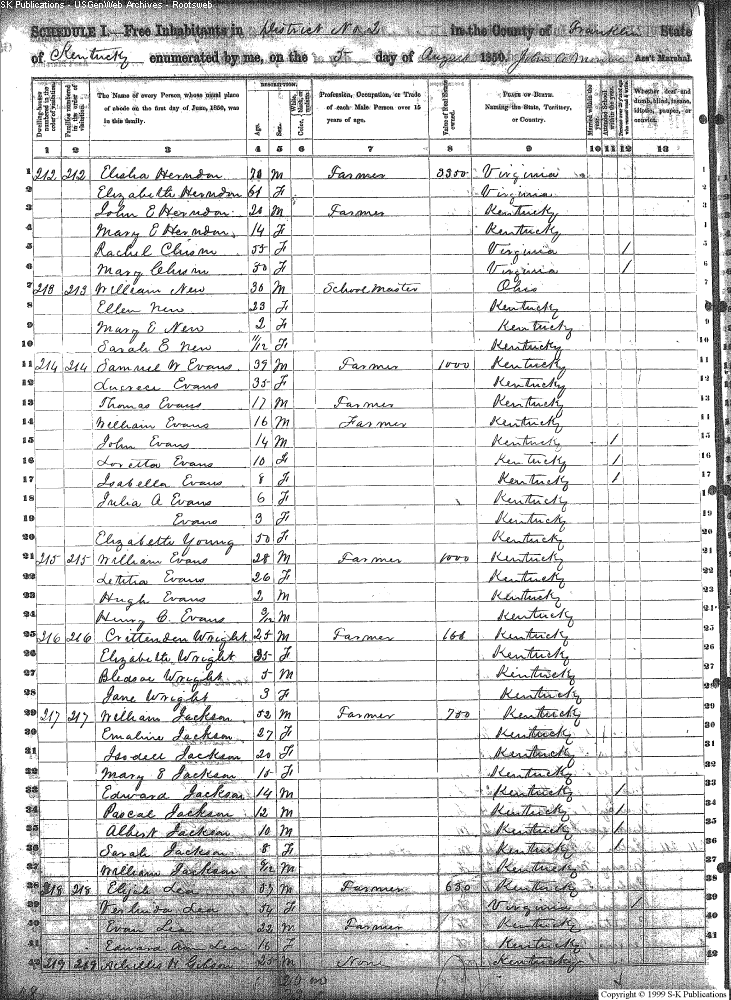 SK Publications - USGenWeb Archives - Rootsweb
SCHEDULE I.—Free Inhabitants in District No. 2 in the County of Franklin State
of Kentucky enumerated by me, on the 5 day of August 1850. Ass't Marshal.
Dwelling-houses numbered in the order of visitation. Families numbered in the order of visitation. The Name of every Person whose usual place of abode on the first day of June, 1850, was in this family. DESCRIPTION. Age. Sex. Color, White, black, or mulatto. Profession, Occupation, or Trade of each Male Person over 15 years of age. Value of Real Estate owned. PLACE OF BIRTH. Naming the State, Territory, or Country. Married within the year. Whether deaf and dumb, blind, insane, idiotic, pauper, or convict.
1 2 3 4 5 6 7 8 9 10 11 12 13
1 212 212 Elisha Herndon 70 M Farmer 3300 Virginia
2 Elizabeth Herndon 61 F Virginia
3 John E Herndon 20 M Farmer Kentucky
4 Mary E Herndon 14 F Kentucky
5 Rachel Chism 55 F Virginia /
6 Mary Chism 50 F Virginia /
7 213 213 William New 30 M School Master Ohio
8 Ellen New 23 F Kentucky
9 Mary E New 2 F Kentucky
10 Sarah E New 11/12 F Kentucky
11 214 214 Samuel W Evans 39 M Farmer 1000 Kentucky
12 Lucrece Evans 35 F Kentucky
13 Thomas Evans 17 M Farmer Kentucky
14 William Evans 16 M Farmer Kentucky
15 John Evans 14 M Kentucky /
16 Loretta Evans 10 F Kentucky /
17 Isabella Evans 8 F Kentucky /
18 Julia A Evans 6 F Kentucky
19 Evans 3 F Kentucky
20 Elizabeth Young 50 F Kentucky
21 215 215 William Evans 28 M Farmer 1000 Kentucky
22 Letitia Evans 26 F Kentucky
23 Hugh Evans 2 M Kentucky
24 Henry C. Evans 9/12 M Kentucky
25 216 216 Crittenden Wright 25 M Farmer 166 Kentucky
26 Elizabeth Wright 25 F Kentucky
27 Bledsoe Wright 5 M Kentucky
28 Jane Wright 3 F Kentucky
29 217 217 William Jackson 52 M Farmer 750 Kentucky
30 Emaline Jackson 27 F Kentucky
31 Isodell Jackson 20 F Kentucky
32 Mary E Jackson 15 F Kentucky
33 Edward Jackson 14 M Kentucky /
34 Pascal Jackson 12 M Kentucky /
35 Albert Jackson 10 M Kentucky /
36 Sarah Jackson 8 F Kentucky /
37 William Jackson 9/12 M Kentucky
38 218 218 Elijah Lea 57 M Farmer 650 Kentucky
39 Verlinda Lea 54 F Virginia /
40 Evan Lea 22 M Farmer Kentucky
41 Edward Ann Lea 16 F Kentucky
42 219 219 Achilles H Gibson 25 M None Kentucky
Copyright © 1999 S-K Publications